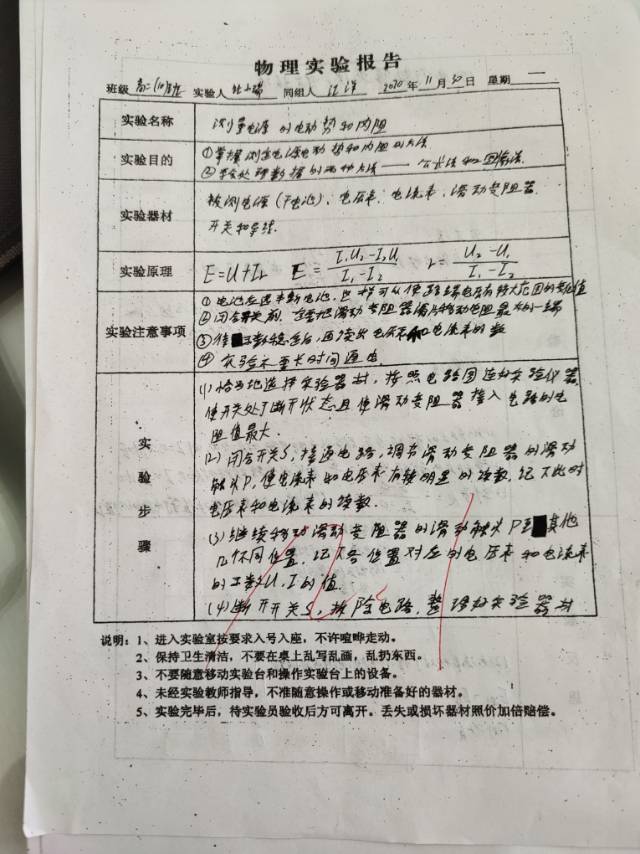 物理实验报告
班级 高二 实验人 同组人 2020年 11月 30日 星期 一
实验名称 测量电源的电动势和内阻
实验目的 ①掌握测定电源电动势和内阻的方法
②学会处理数据的两种方法——公式法和图像法
实验器材 被测电源(干电池)、电压表、电流表、滑动变阻器、
开关和导线.
实验原理 E=U+Ir E=(I₁U₂-I₂U₁)/(I₁-I₂) r=(U₂-U₁)/(I₁-I₂)
实验注意事项 ①电池应选半新电池,这样可以使路端电压有较大范围的变化值
②闭合开关前,要把滑动变阻器滑片移动电阻最大的一端
③待示数稳定后,再读出电压表和电流表的数
④实验不要长时间通电
实验步骤 (1)恰当地选择实验器材,按照电路图连好实验仪器,
使开关处于断开状态且使滑动变阻器接入电路的电
阻值最大.
(2)闭合开关S,接通电路,调节滑动变阻器的滑动
触头P,使电流表和电压表有较明显的读数,记下此时
电压表和电流表的读数.
(3)继续移动滑动变阻器的滑动触头P至其他
几个不同位置,记下各位置对应的电压表和电流表
的示数U、I的值.
(4)断开开关S,拆除电路,整理好实验器材
说明:1、进入实验室按要求入号入座,不许喧哗走动。
2、保持卫生清洁,不要在桌上乱写乱画,乱扔东西。
3、不要随意移动实验台和操作实验台上的设备。
4、未经实验教师指导,不准随意操作或移动准备好的器材。
5、实验完毕后,待实验员验收后方可离开。丢失或损坏器材照价加倍赔偿。